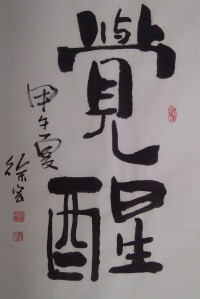 覺醒
甲午夏
徐宏